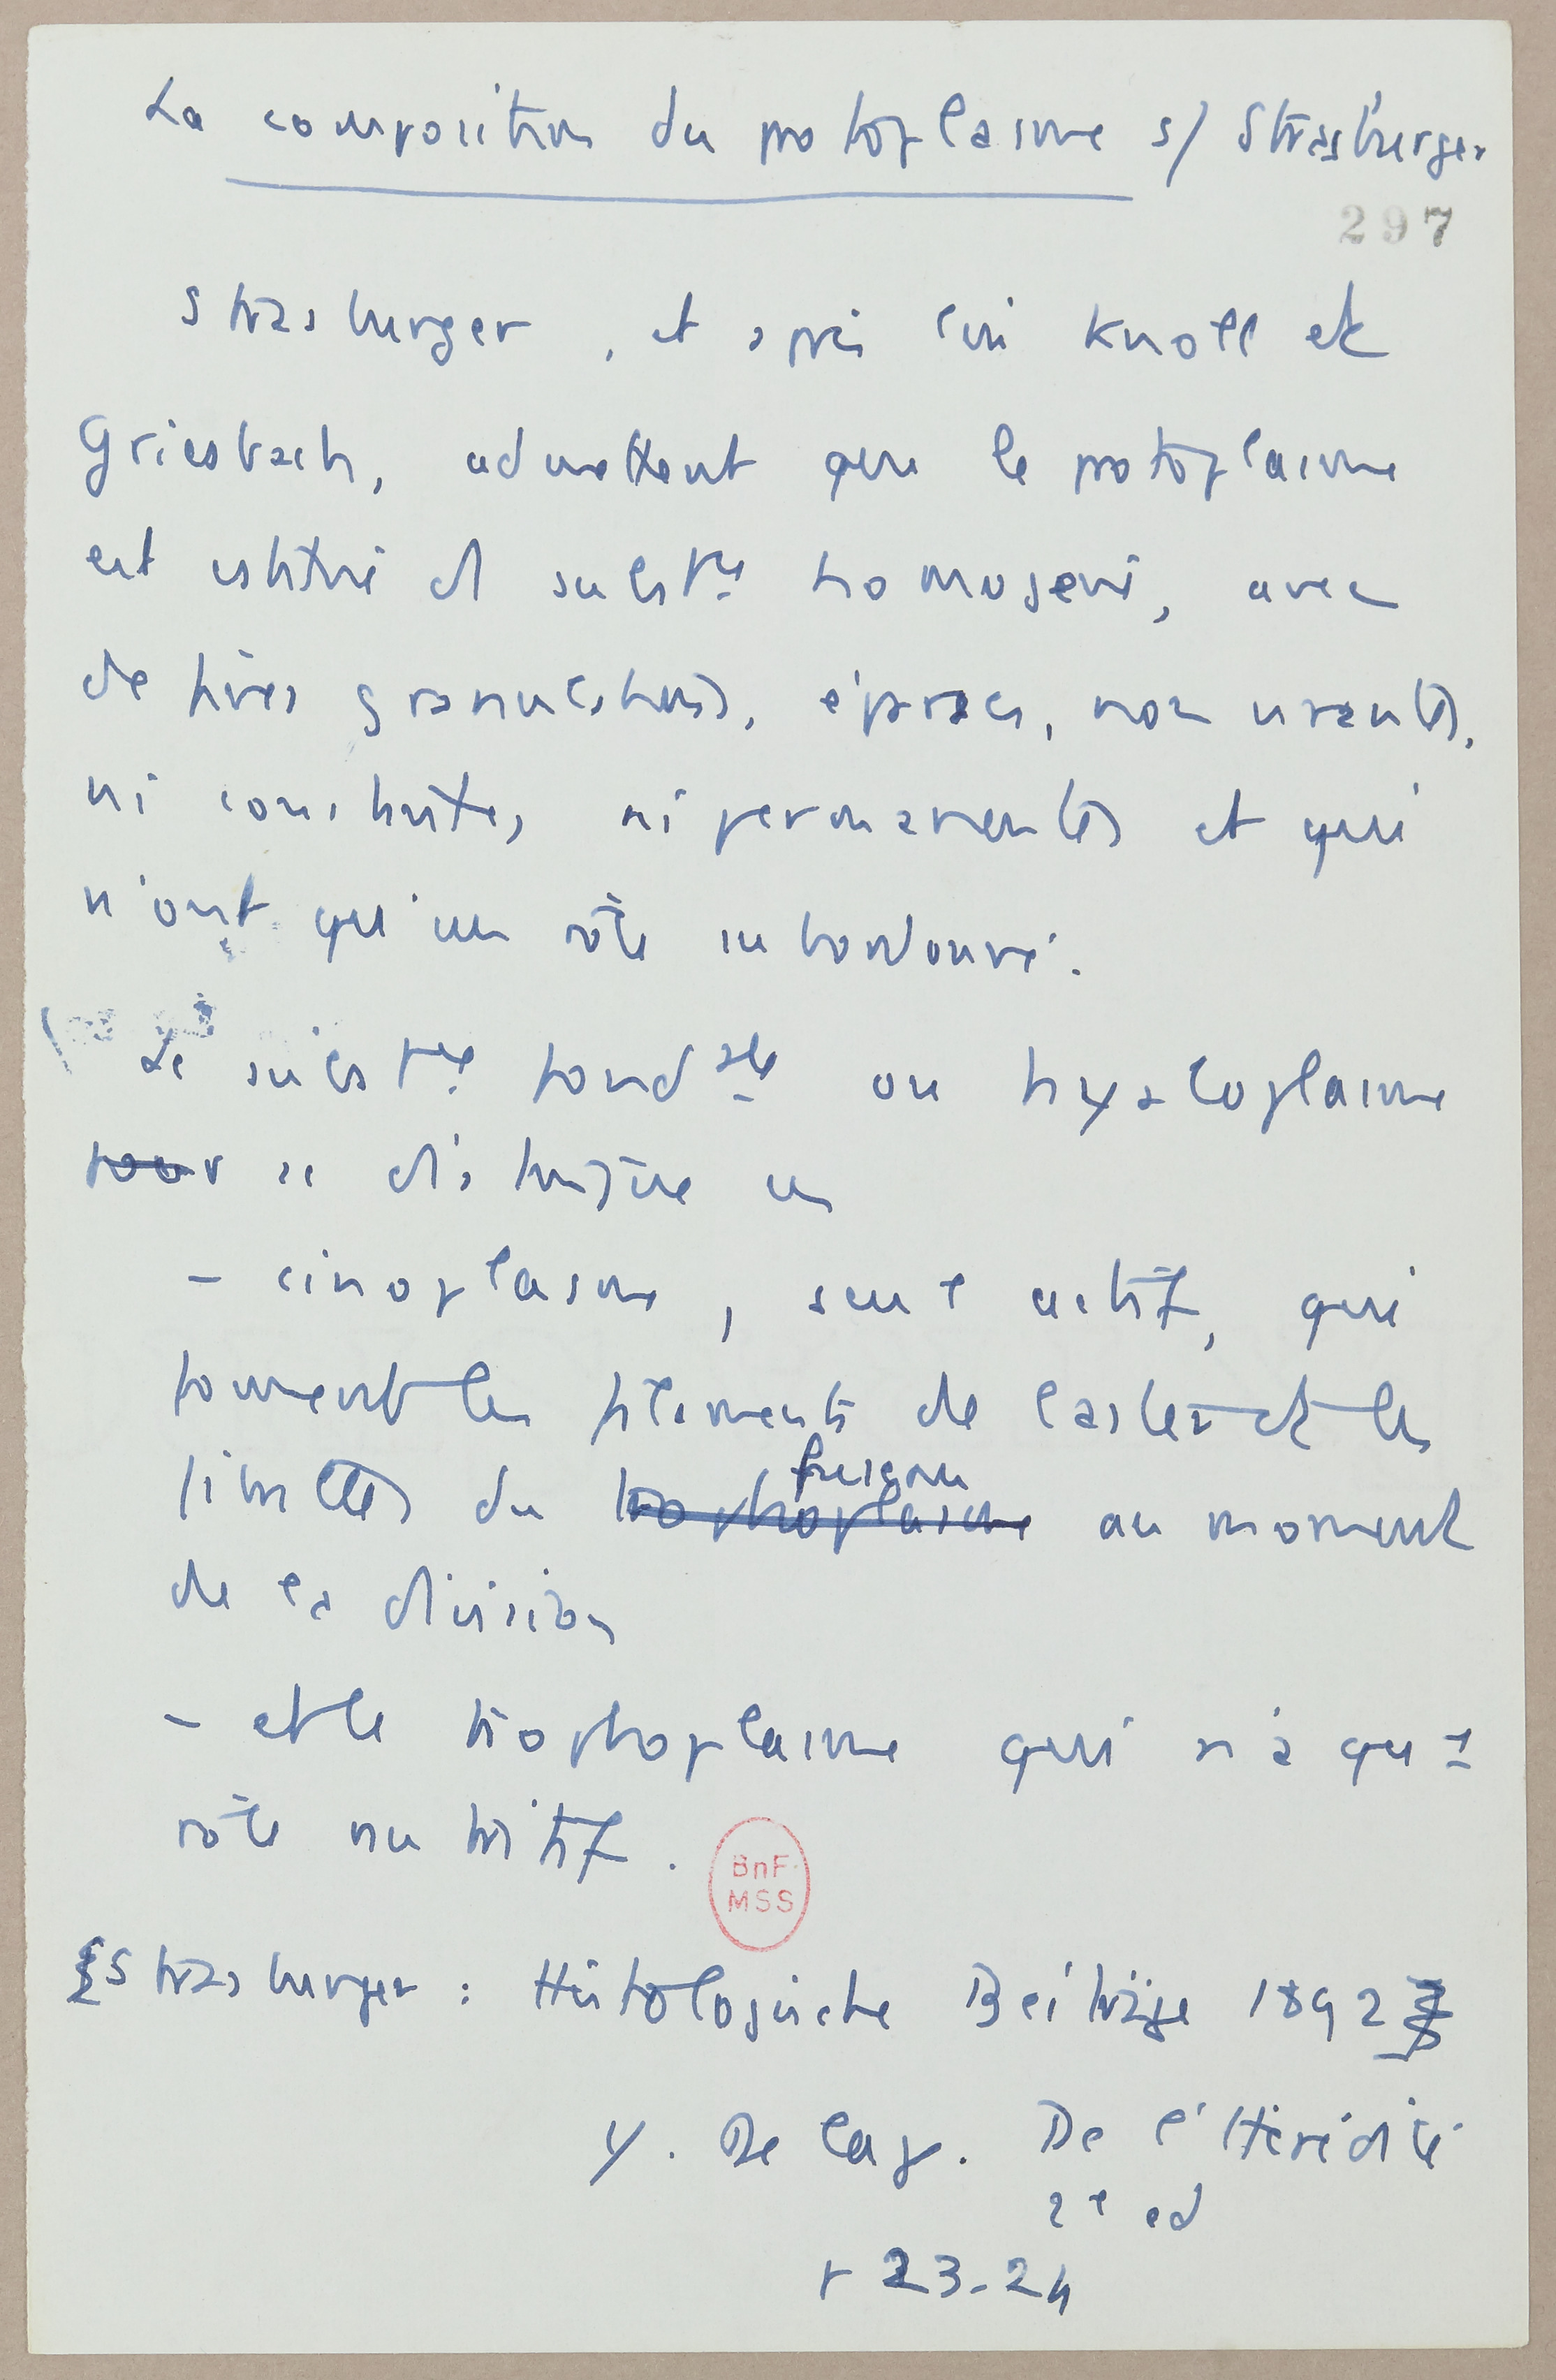 La composition du protoplasme s/ Strasburger
297
Strasburger, et après lui Knoll et
Griesbach, admettent que le protoplasme
est constitué d substce homogène, avec
de fines granulations, éparses, non vivantes,
ni constantes, ni permanentes et qui
n'ont qu'un rôle subordonné.
La substce fondale ou hyaloplasme
se distingue en
- cinoplasme, seul actif, qui
forment les filaments de l'aster et les
fibrilles du fuseau trophoplasme au moment
de la division
- et le trophoplasme qui n'a que
rôle nutritif.
BnF
MSS
Strasburger : Histologische Beiträge 1892
Y. Delage. De l'Hérédité
2e ed
p 23-24